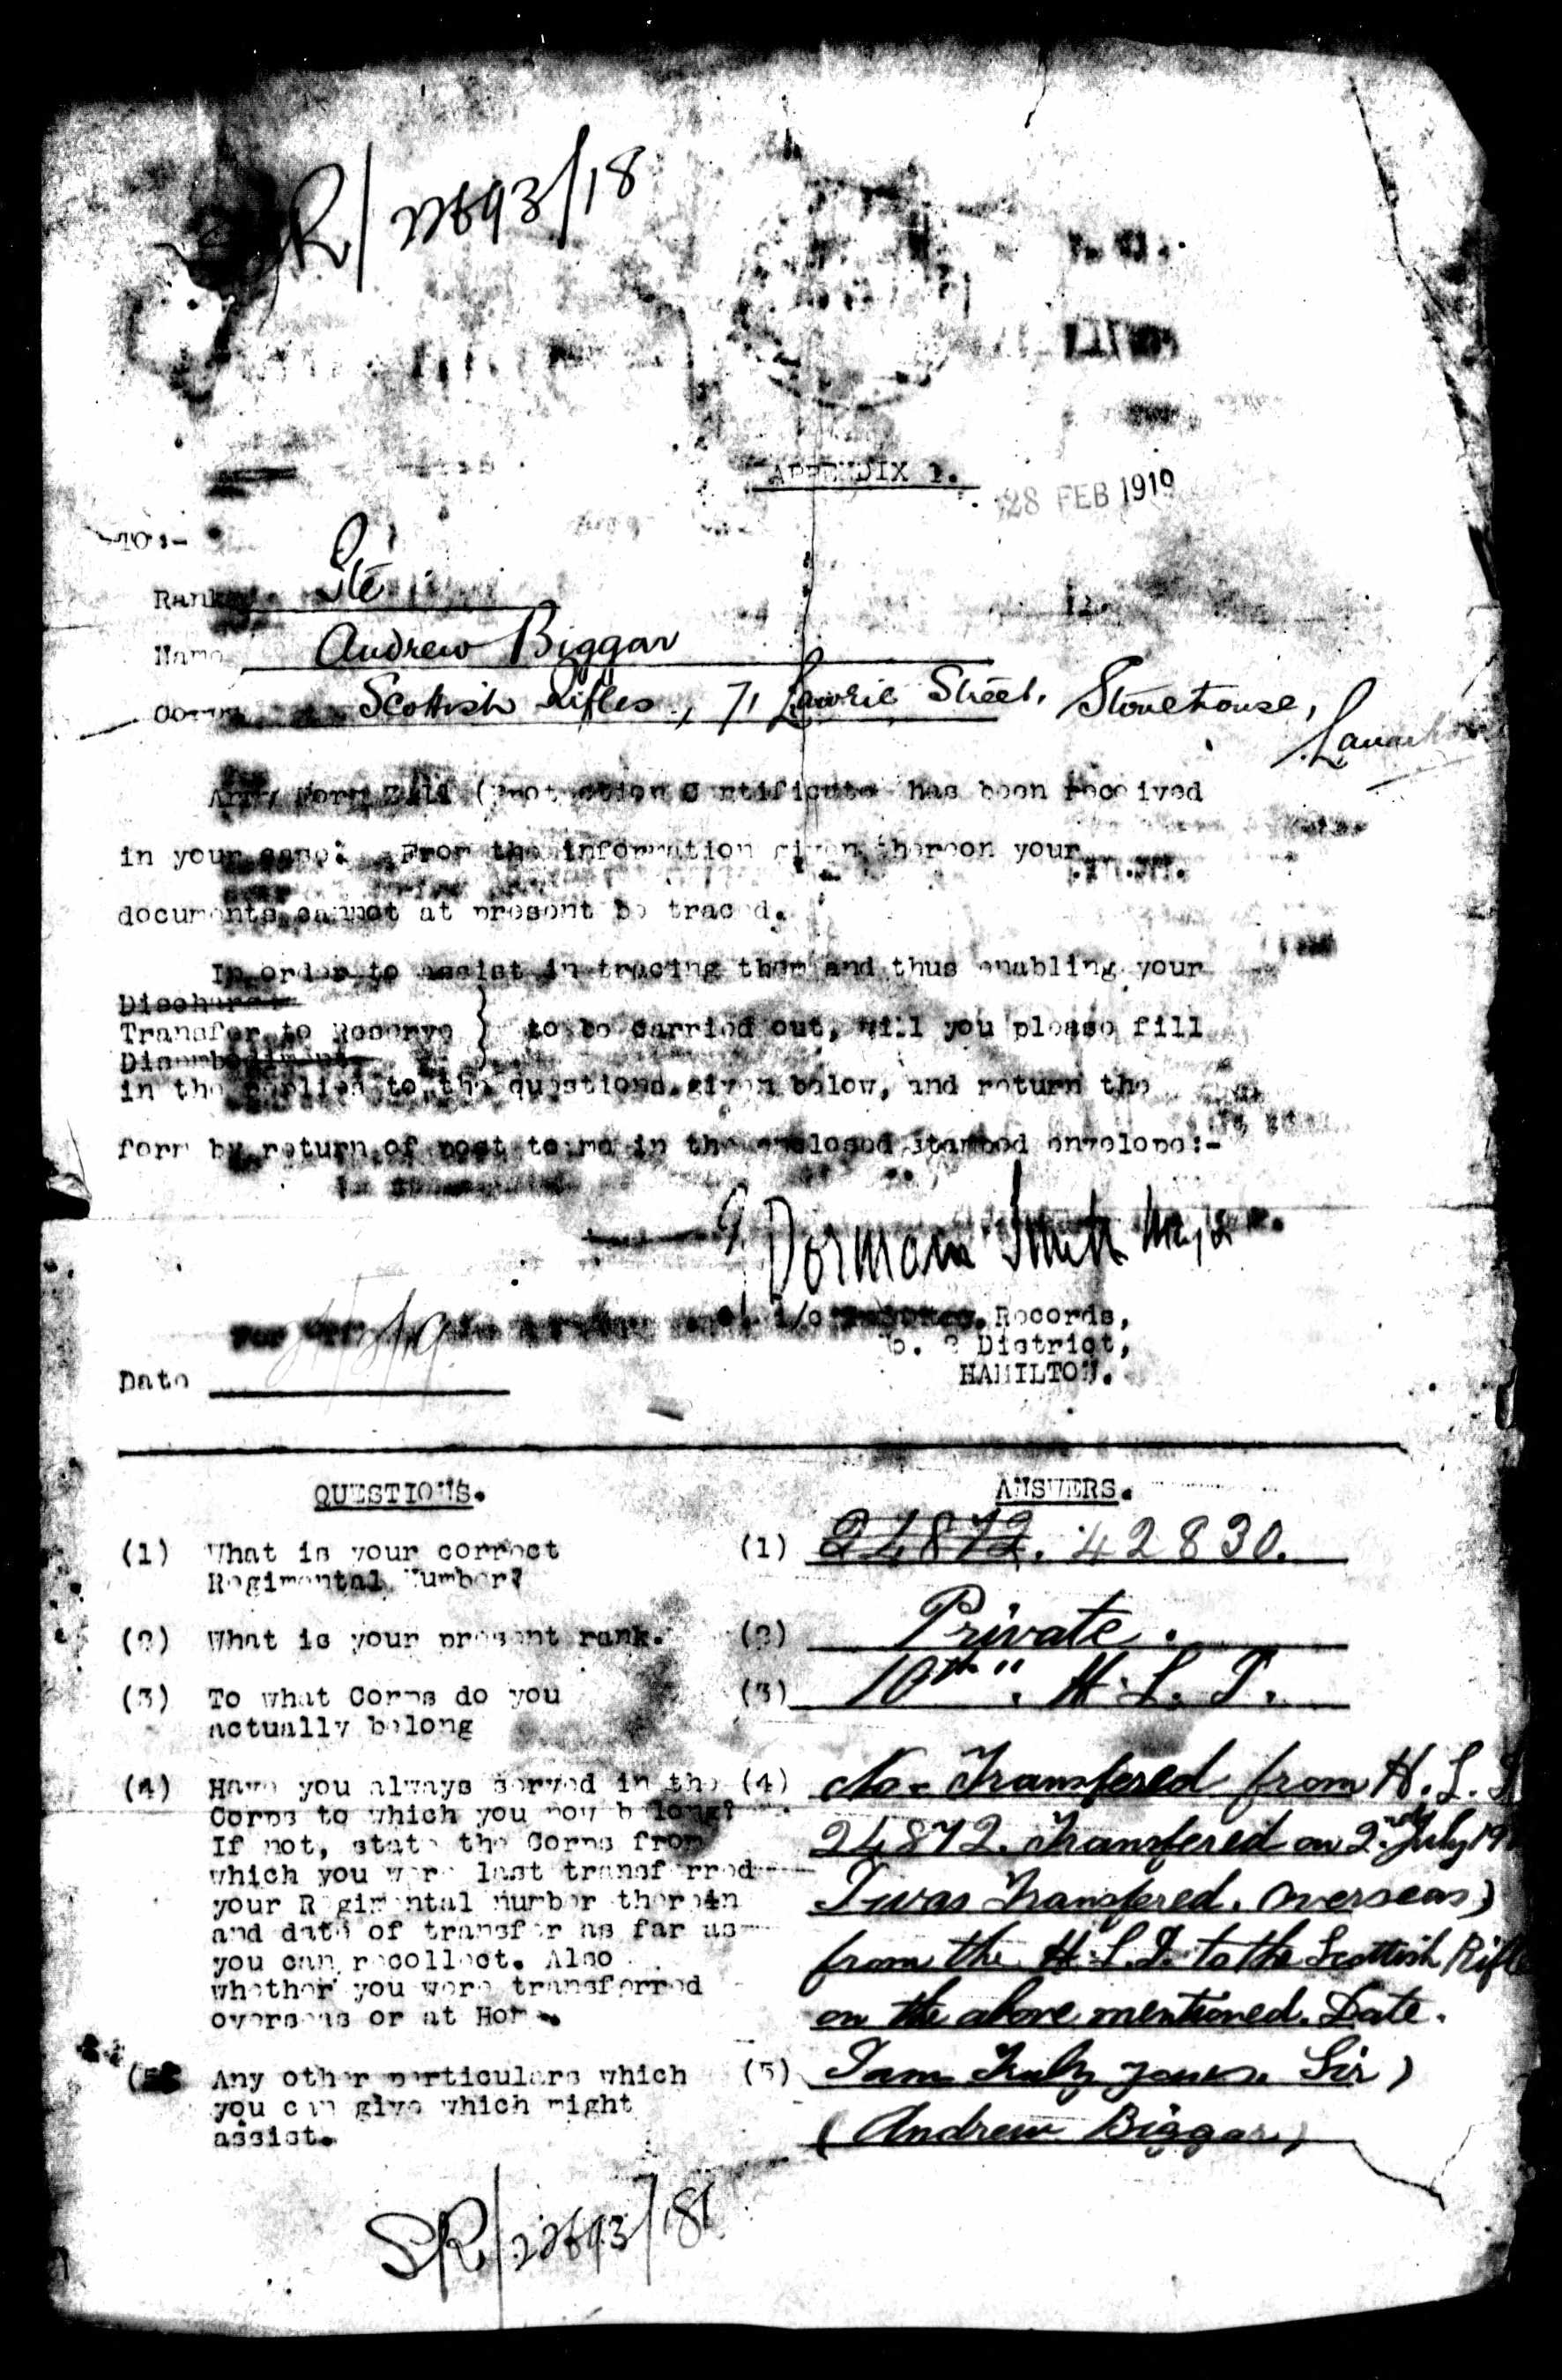 SR/22693/18
APPENDIX 1.
28 FEB 1919
TO:-
Rank Pte
Name Andrew Biggar
Scottish Rifles, 71 Lawrie Street, Stonehouse,
Army Form (Protection Certificate has been received
in your case: From the information given thereon your
documents cannot at present be traced.
In order to assist in tracing them and thus enabling your
Discharge
Transfer to Reserve } to be carried out, will you please fill
Disembodiment
in the replies to the questions given below, and return the
form by return of post to me in the enclosed stamped envelope:-
Dorman Smith Major
i/c Records,
No. 2 District,
HAMILTON.
Date
QUESTIONS. ANSWERS.
(1) What is your correct (1) 24872. 42830.
Regimental Number?
(2) What is your present rank. (2) Private.
(3) To what Corps do you (3) 10th". H.L.I.
actually belong
(4) Have you always served in the (4) No - Transfered from H.L.I
Corps to which you now belong?
If not, state the Corps from 24872. Transfered on 2nd July 19
which you were last transferred
your Regimental number therein I was Transfered. Overseas)
and date of transfer as far as
you can recollect. Also from the H.L.I. to the Scottish Rifle
whether you were transferred
overseas or at Home. on the above mentioned. Date.
(5) Any other particulars which (5) I am Truly yours. Sir)
you can give which might (Andrew Biggar)
assist.
SR/22693/18